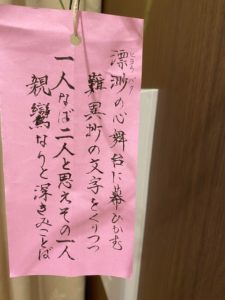 漂渺の心舞台に幕ひかむ
歎異抄の文字をくりつつ
一人なば二人と思えその一人
親鸞なりと深きみことば